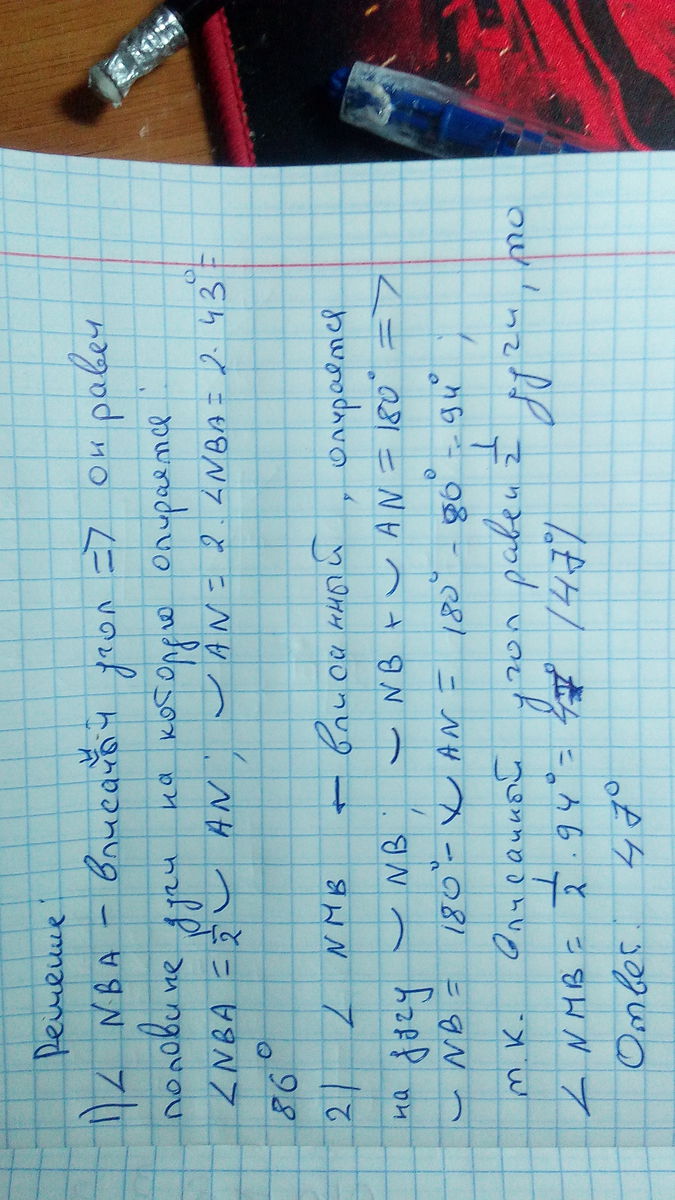 Решение:
1) ∠ NBA – вписанный угол => он равен
половине дуги на которую опирается:
∠NBA = 1/2 ◡ AN ; ◡ AN = 2 · ∠NBA = 2 · 43° =
86°
2) ∠ NMB – вписанный , опирается
на дугу ◡ NB ; ◡ NB + ◡ AN = 180° =>
◡ NB = 180° - ◡ AN = 180° - 86° = 94° ;
т.к. Описанный угол равен 1/2 дуги , то
∠ NMB = 1/2 · 94° = 47° /47°/
Ответ: 47°